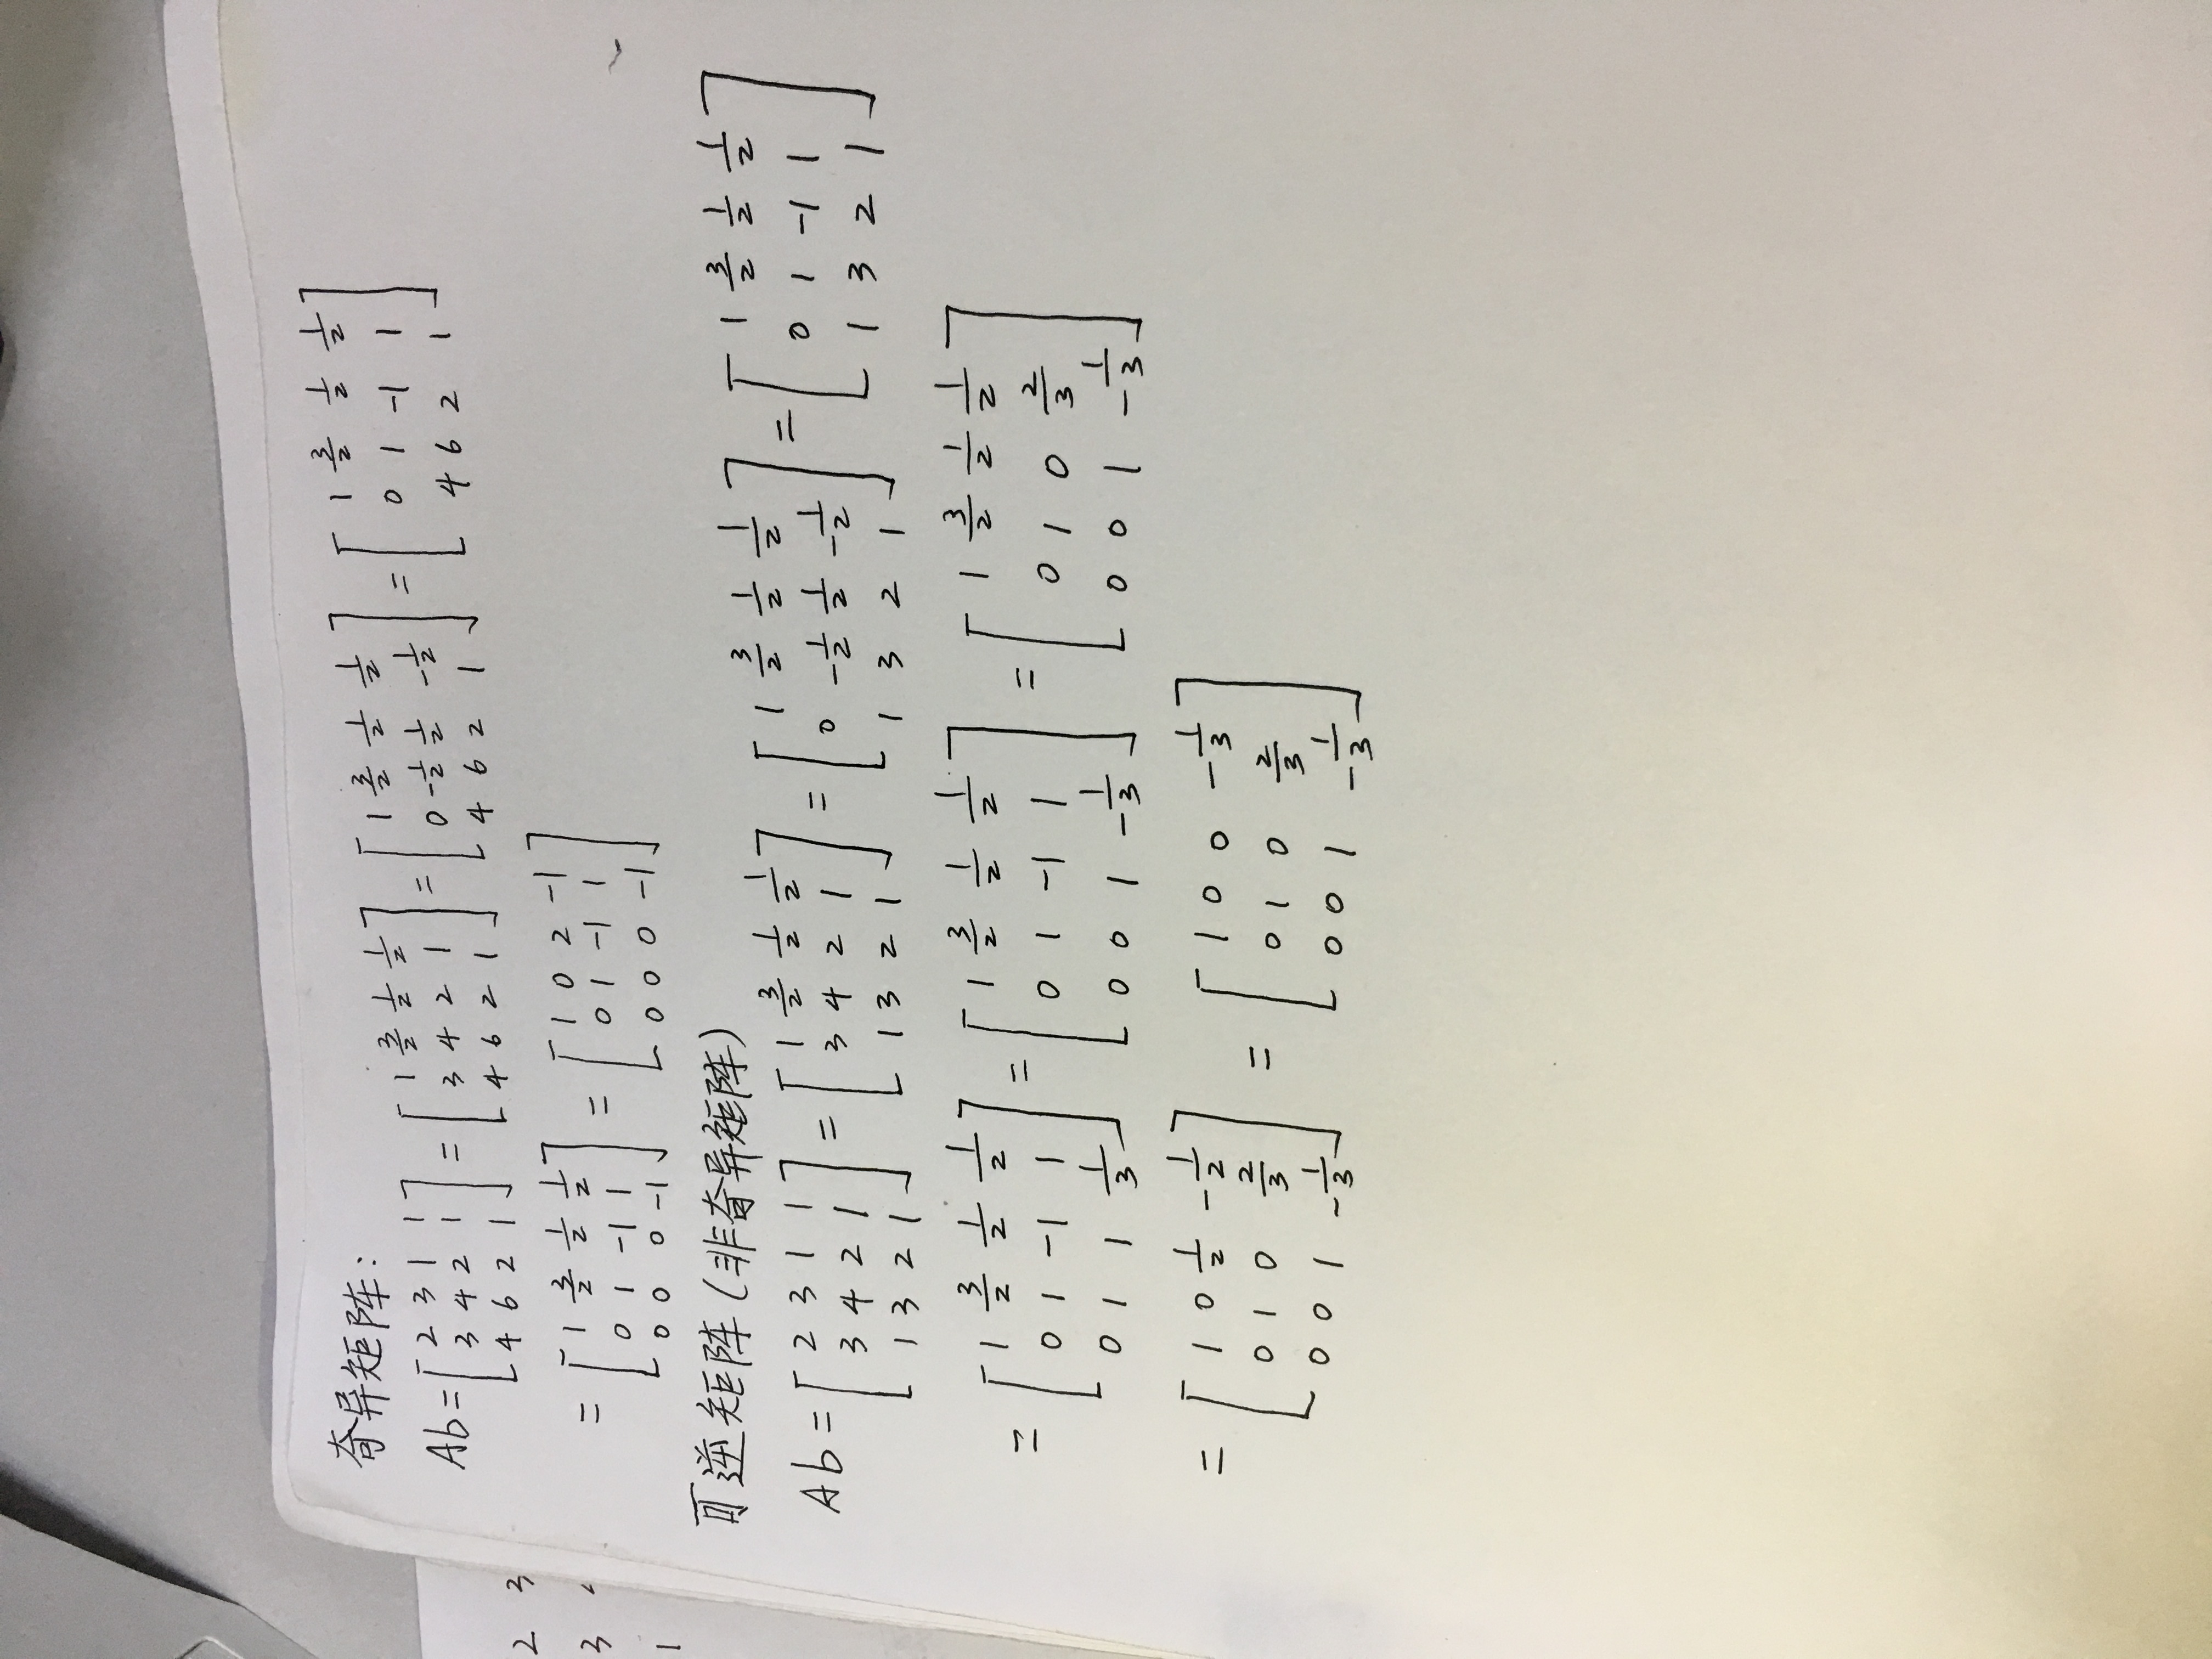 奇异矩阵:
Ab = [2 3 1 1; 3 4 2 1; 4 6 2 1] = [1 3/2 1/2 1/2; 3 4 2 1; 4 6 2 1] = [1 3/2 1/2 1/2; 0 -1/2 1/2 -1/2; 4 6 2 1] = [1 3/2 1/2 1/2; 0 1 -1 1; 4 6 2 1]
= [1 3/2 1/2 1/2; 0 1 -1 1; 0 0 0 -1] = [1 0 2 -1; 0 1 -1 1; 0 0 0 -1]
可逆矩阵(非奇异矩阵)
Ab = [2 3 1 1; 3 4 2 1; 1 3 2 1] = [1 3/2 1/2 1/2; 3 4 2 1; 1 3 2 1] = [1 3/2 1/2 1/2; 0 -1/2 1/2 -1/2; 1 3 2 1] = [1 3/2 1/2 1/2; 0 1 -1 1; 1 3 2 1]
= [1 3/2 1/2 1/2; 0 1 -1 1; 0 1 1 1/3] = [1 3/2 1/2 1/2; 0 1 -1 1; 0 0 1 -1/3] = [1 3/2 1/2 1/2; 0 1 0 2/3; 0 0 1 -1/3]
= [1 0 1/2 -1/2; 0 1 0 2/3; 0 0 1 -1/3] = [1 0 0 -1/3; 0 1 0 2/3; 0 0 1 -1/3]
2 3
3
1